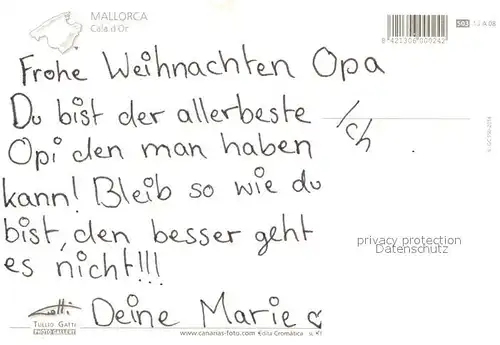 MALLORCA
Cala d'Or
8 421306 000242
503
Frohe Weihnachten Opa
Du bist der allerbeste
Opi den man haben
kann! Bleib so wie du
bist, den besser geht
es nicht!!!
Deine Marie ♡
Ich
privacy protection
Datenschutz
TULLIO GATTI
PHOTO GALLERY
www.canarias-foto.com